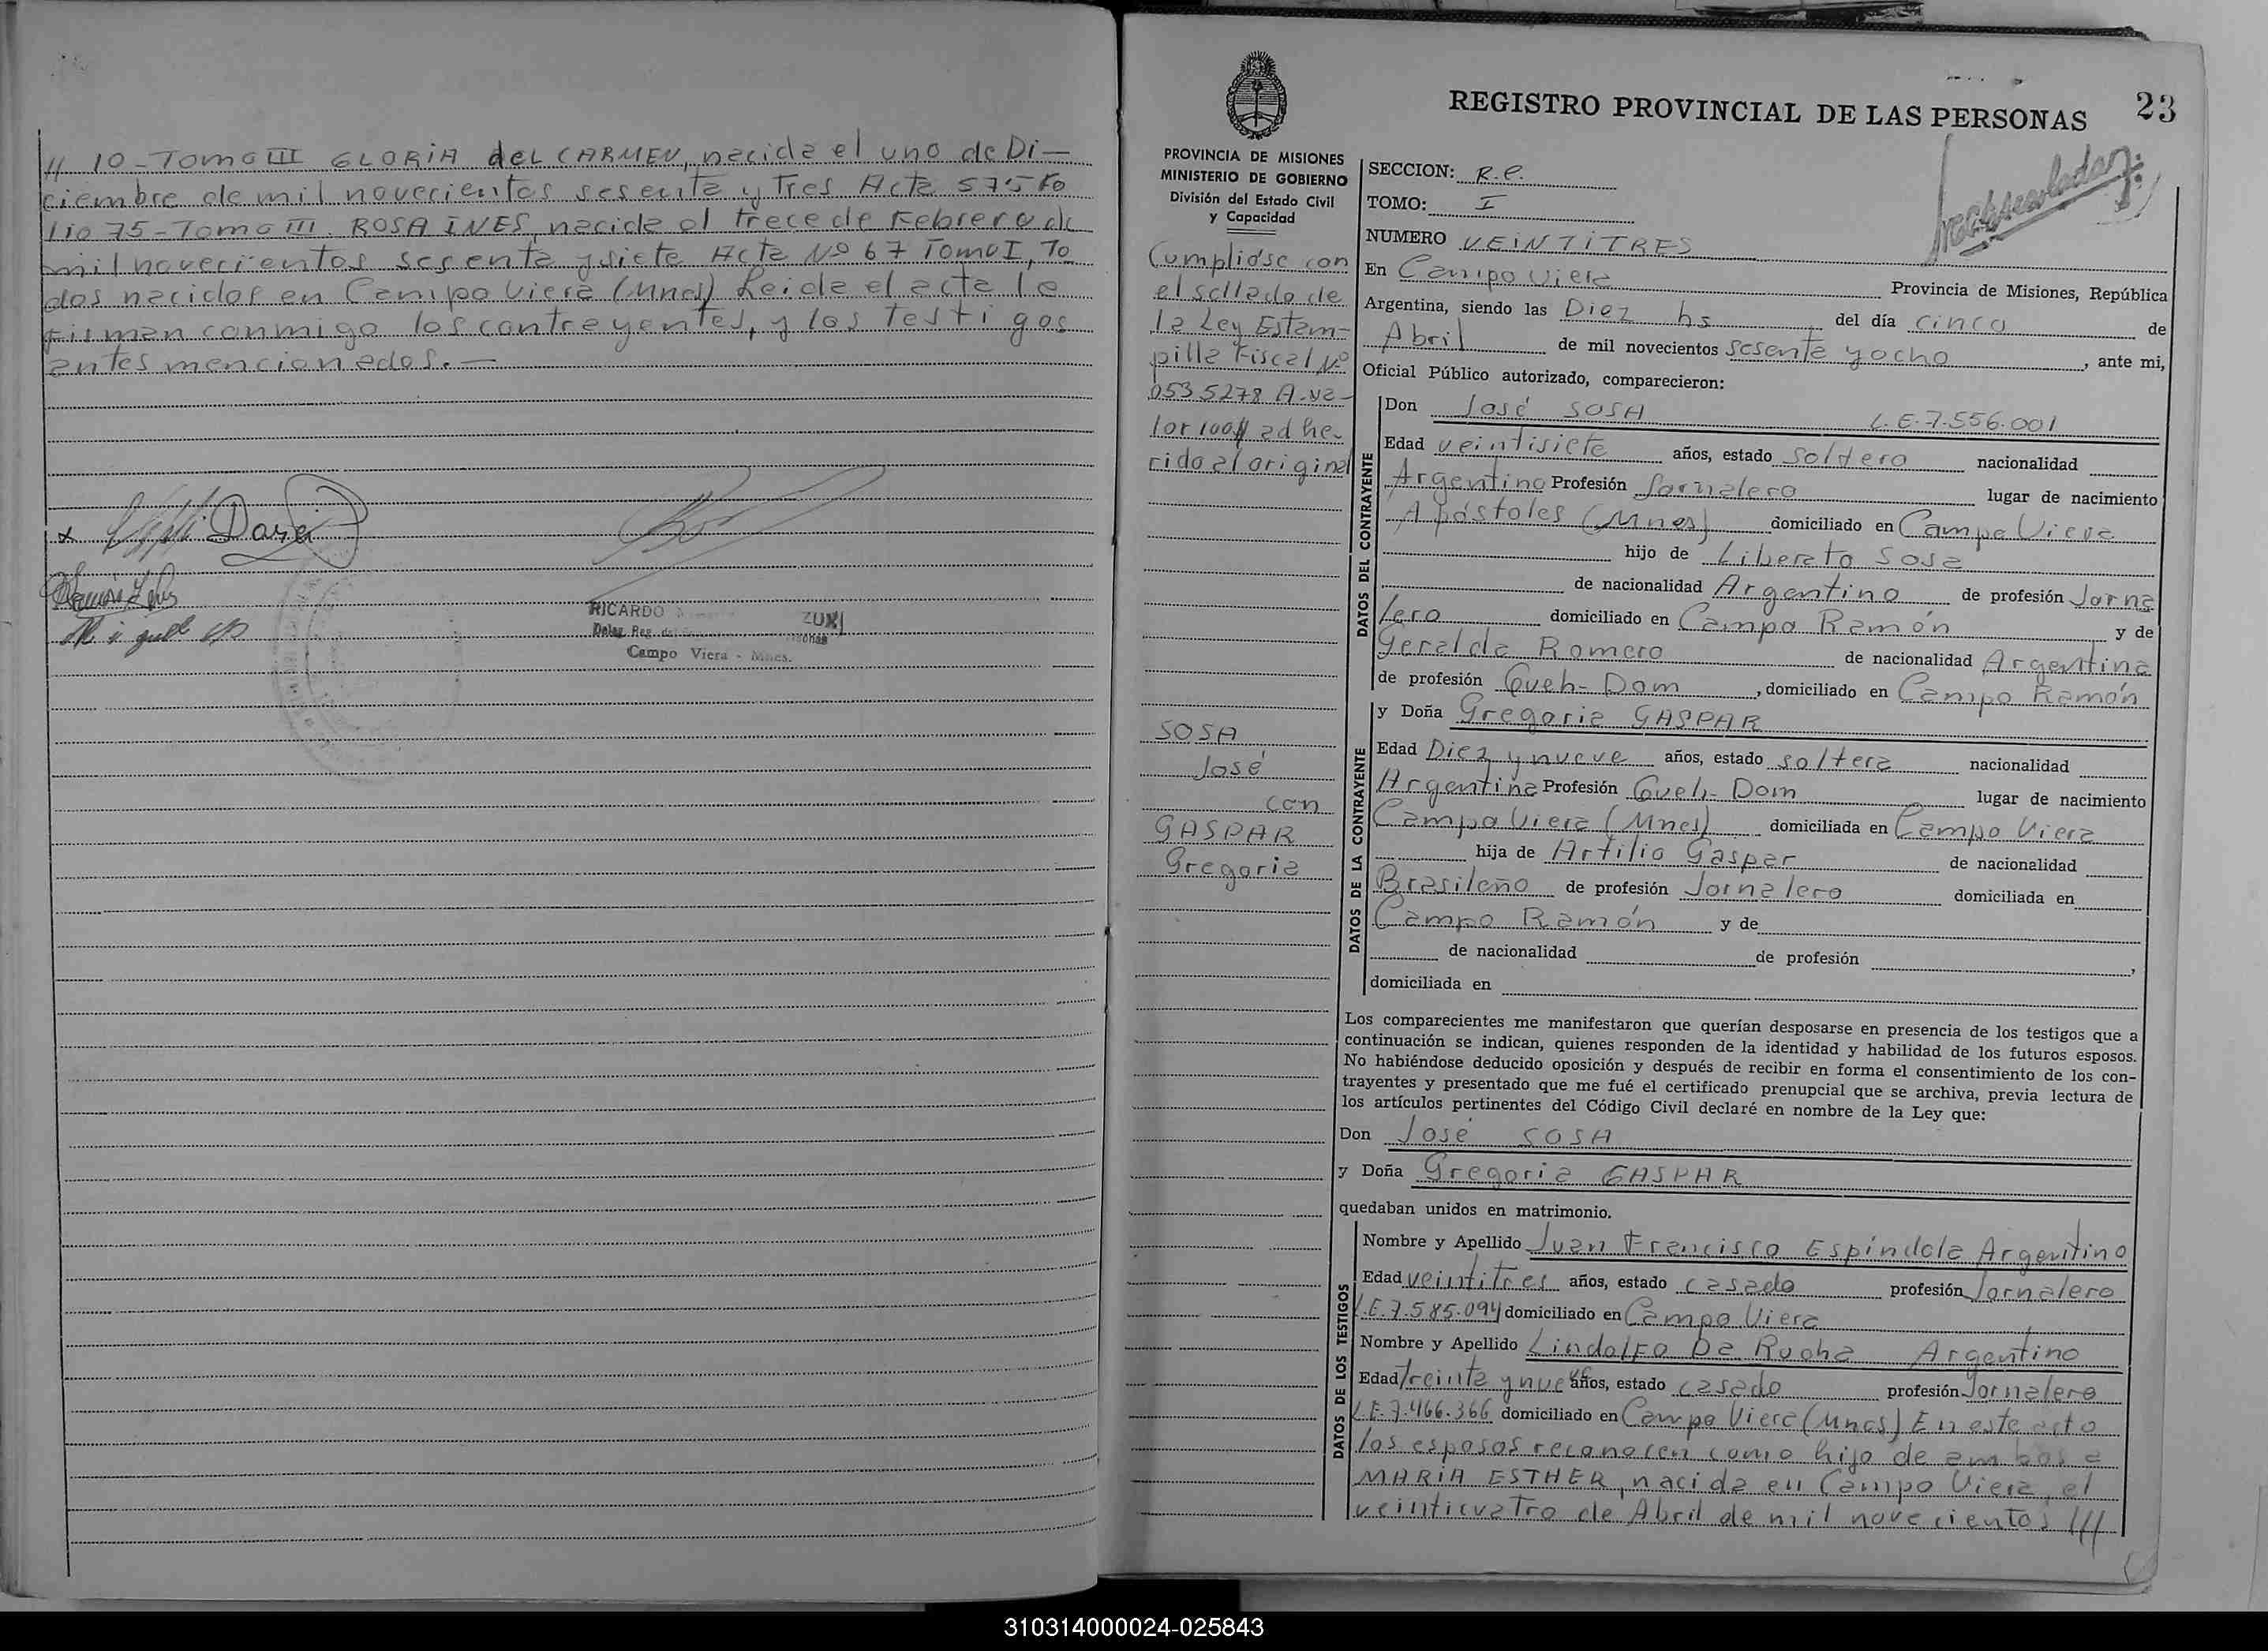 // 10 - Tomo III GLORIA del CARMEN, nacida el uno de Di-
ciembre de mil novecientos sesenta y Tres Acta 575 Fo
lio 75 - Tomo III. ROSA INES, nacida el trece de Febrero de
mil novecientos sesenta y siete Acta Nº 67 Tomo I, To
dos nacidos en Campo Viera (Mnes) Leida el acta la
Firman conmigo los contrayentes, y los Testigos
antes mencionados. -
RICARDO ZUK
Deleg. Reg. de las Personas
Campo Viera - Mnes.
REGISTRO PROVINCIAL DE LAS PERSONAS 23
PROVINCIA DE MISIONES
MINISTERIO DE GOBIERNO
División del Estado Civil
y Capacidad
Cumplióse con
el sellado de
la Ley Estam-
pilla Fiscal Nº
0535278 A-va-
lor 100// adhe-
rido al original
SOSA
José
con
GASPAR
Gregoria
SECCION: R.e.
TOMO: I
NUMERO VEINTITRES
En Campo Viera Provincia de Misiones, República
Argentina, siendo las Diez hs del día cinco de
Abril de mil novecientos sesenta y ocho, ante mi,
Oficial Público autorizado, comparecieron:
DATOS DEL CONTRAYENTE
Don José SOSA L.E. 7.556.001
Edad veintisiete años, estado soltero nacionalidad
Argentino Profesión Jornalero lugar de nacimiento
Apóstoles (Mnes) domiciliado en Campo Viera
hijo de Liberato Sosa
de nacionalidad Argentino de profesión Jorna
lero domiciliado en Campo Ramón y de
Geralda Romero de nacionalidad Argentina
de profesión Queh-Dom, domiciliado en Campo Ramón
DATOS DE LA CONTRAYENTE
y Doña Gregoria GASPAR
Edad Diez y nueve años, estado soltera nacionalidad
Argentina Profesión Queh-Dom lugar de nacimiento
Campo Viera (Mnes) domiciliada en Campo Viera
hija de Artilio Gaspar de nacionalidad
Brasileño de profesión Jornalero domiciliada en
Campo Ramón y de
de nacionalidad de profesión ,
domiciliada en
Los comparecientes me manifestaron que querían desposarse en presencia de los testigos que a
continuación se indican, quienes responden de la identidad y habilidad de los futuros esposos.
No habiéndose deducido oposición y después de recibir en forma el consentimiento de los con-
trayentes y presentado que me fué el certificado prenupcial que se archiva, previa lectura de
los artículos pertinentes del Código Civil declaré en nombre de la Ley que:
Don José SOSA
y Doña Gregoria GASPAR
quedaban unidos en matrimonio.
DATOS DE LOS TESTIGOS
Nombre y Apellido Juan Francisco Espíndola Argentino
Edad veintitres años, estado casado profesión Jornalero
L.E. 7.585.094 domiciliado en Campo Viera
Nombre y Apellido Lindolfo Da Rocha Argentino
Edad Treinta y nueve años, estado casado profesión Jornalero
L.E. 7.466.366 domiciliado en Campo Viera (Mnes) En este acto
los esposos reconocen como hijo de ambos a
MARIA ESTHER, nacida en Campo Viera, el
veinticuatro de Abril de mil novecientos ///
310314000024-025843